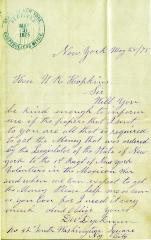 New York May 24/75
Hon W. R. Hopkins
Sir
Will You
be kind enough to inform
me if the papers that I sent
to you are all that is required
to get the Money that was ordered
by the Legislator of the State of New
York to the 1st Regt of New York
Volunteers in the Mexican War
and when we can expect to get
the Money Please help me on
as you can for I need it very
much and oblige yours
No 42 South Washington Square